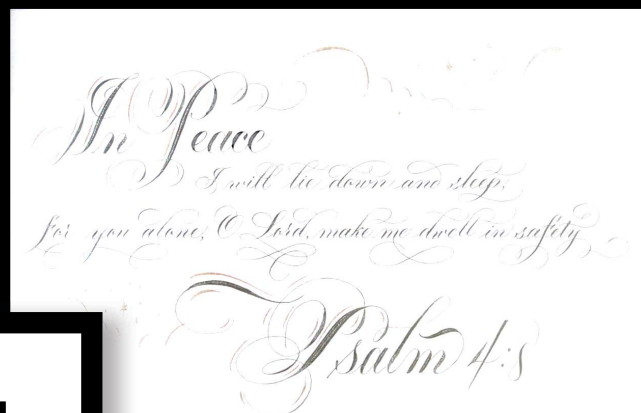 In Peace
I will lie down and sleep;
for you alone, O Lord, make me dwell in safety
Psalm 4:8